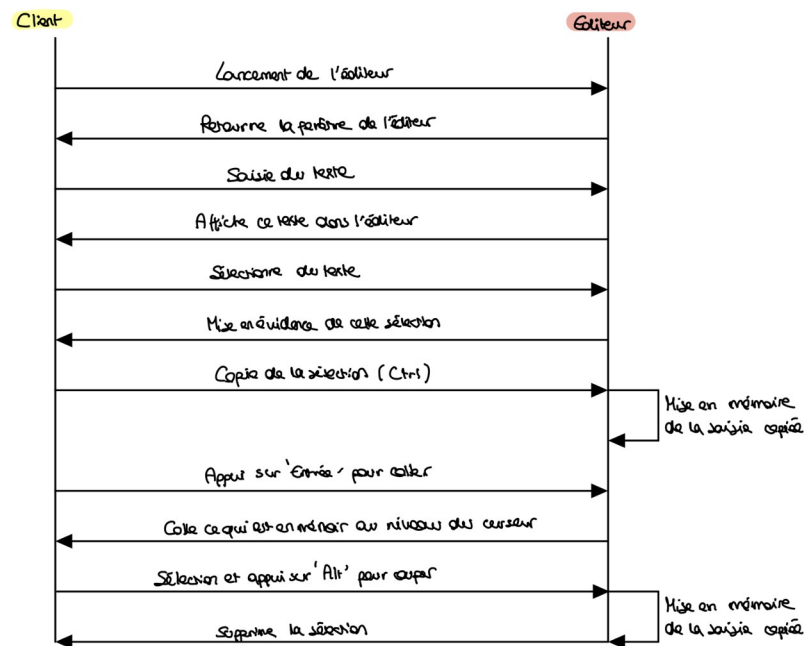 Client
Editeur
Lancement de l'éditeur
Retourne la fenêtre de l'éditeur
Saisie du texte
Affiche ce texte dans l'éditeur
Sélectionne du texte
Mise en évidence de cette sélection
Copie de la sélection (Ctrl)
Mise en mémoire
de la saisie copiée
Appui sur 'Entrée' pour coller
Colle ce qui est en mémoir au niveau du curseur
Sélection et appui sur 'Alt' pour couper
Mise en mémoire
de la saisie copiée
Supprime la sélection